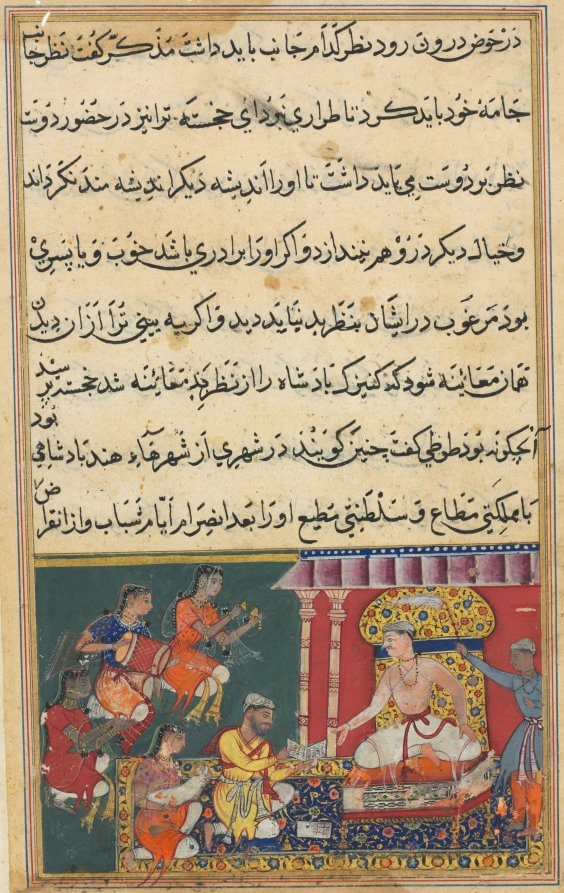 در حوض درون رود نظر کدام جانب باید داشت مذکر گفت نظر جانب
جامه خود باید کرد تا طراری نبرد ای خجسته ترا نیز در حضور دوست
نظر بر دوست می باید داشت تا او را اندیشه دیکر اندیشه مند نکرداند
و خیال دیکر در وهم نیندازد و اکر او را برادری باشد خوب و یا پسری
بود مرغوب در ایشان بنظر بد نیاید دید و اکر به بینی ترا از ان دیدن
همان معائنه شود که کنیزک بادشاه را از نظر بد معائنه شد خجسته پرسید
آنچکونه بود طوطی کفت چنین کویند در شهری از شهرهاء هند بادشاهی بود
با مملکتی مطاع و سلطنتی مطیع او را بعد انصرام ایام شباب و از انقراض